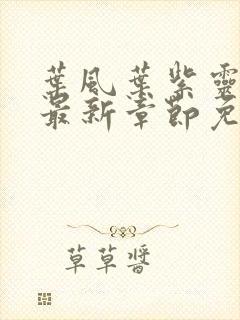 葉風葉紫靈
最新章節免
草草醬